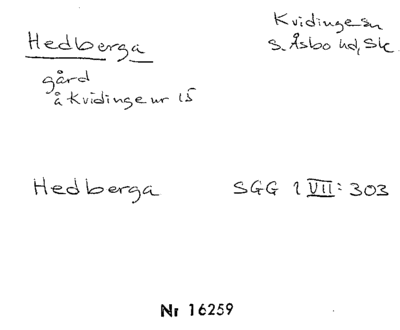 Hedberga
Kvidinge sn
S. Åsbo hd, Sk.
gård
å Kvidinge nr 15
Hedberga SGG 1 VII: 303
Nr 16259